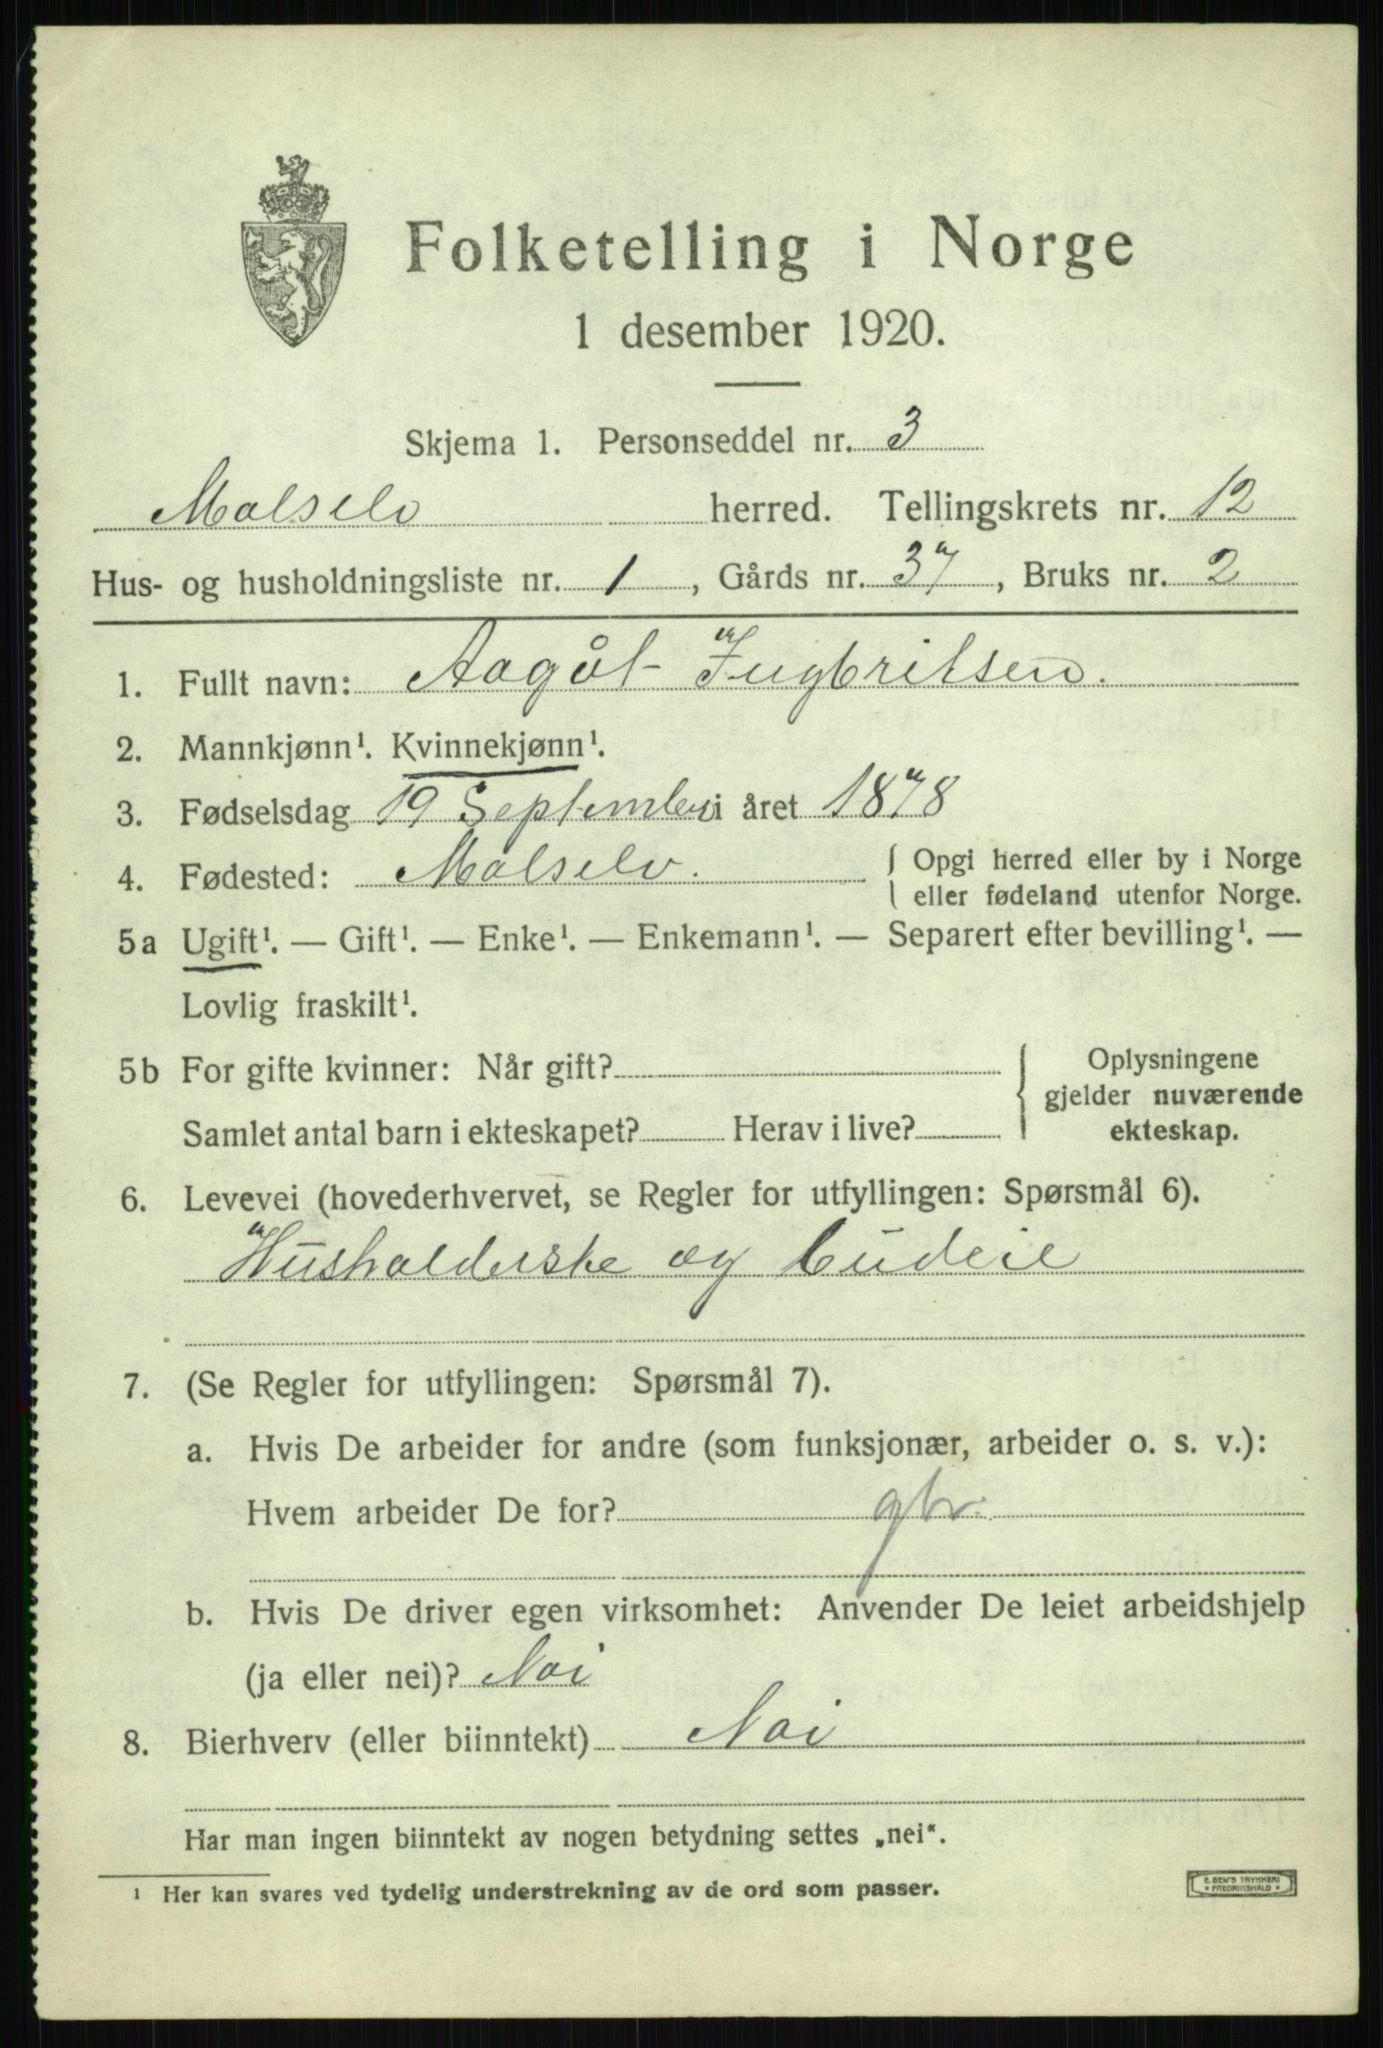 Folketelling i Norge
1 desember 1920.
Skjema 1. Personseddel nr. 3
Malselv herred. Tellingskrets nr. 12
Hus- og husholdningsliste nr. 1, Gårds nr. 37, Bruks nr. 2
1. Fullt navn: Aagåt Ingbritsen.
2. Mannkjønn¹. Kvinnekjønn¹.
3. Fødselsdag 19 September i året 1878
4. Fødested: Målselv. { Opgi herred eller by i Norge
eller fødeland utenfor Norge.
5a Ugift¹. — Gift¹. — Enke¹. — Enkemann¹. — Separert efter bevilling¹. —
Lovlig fraskilt¹.
5b For gifte kvinner: Når gift? { Oplysningene
gjelder nuværende
Samlet antal barn i ekteskapet? Herav i live? ekteskap.
6. Levevei (hovederhvervet, se Regler for utfyllingen: Spørsmål 6).
Husholderske og budeie
7. (Se Regler for utfyllingen: Spørsmål 7).
a. Hvis De arbeider for andre (som funksjonær, arbeider o. s. v.):
Hvem arbeider De for? gbr.
b. Hvis De driver egen virksomhet: Anvender De leiet arbeidshjelp
(ja eller nei)? Nai
8. Bierhverv (eller biinntekt) Nai
Har man ingen biinntekt av nogen betydning settes „nei“.
¹ Her kan svares ved tydelig understrekning av de ord som passer.
E. SEM'S TRYKKERI
* FREDRIKSHALD *